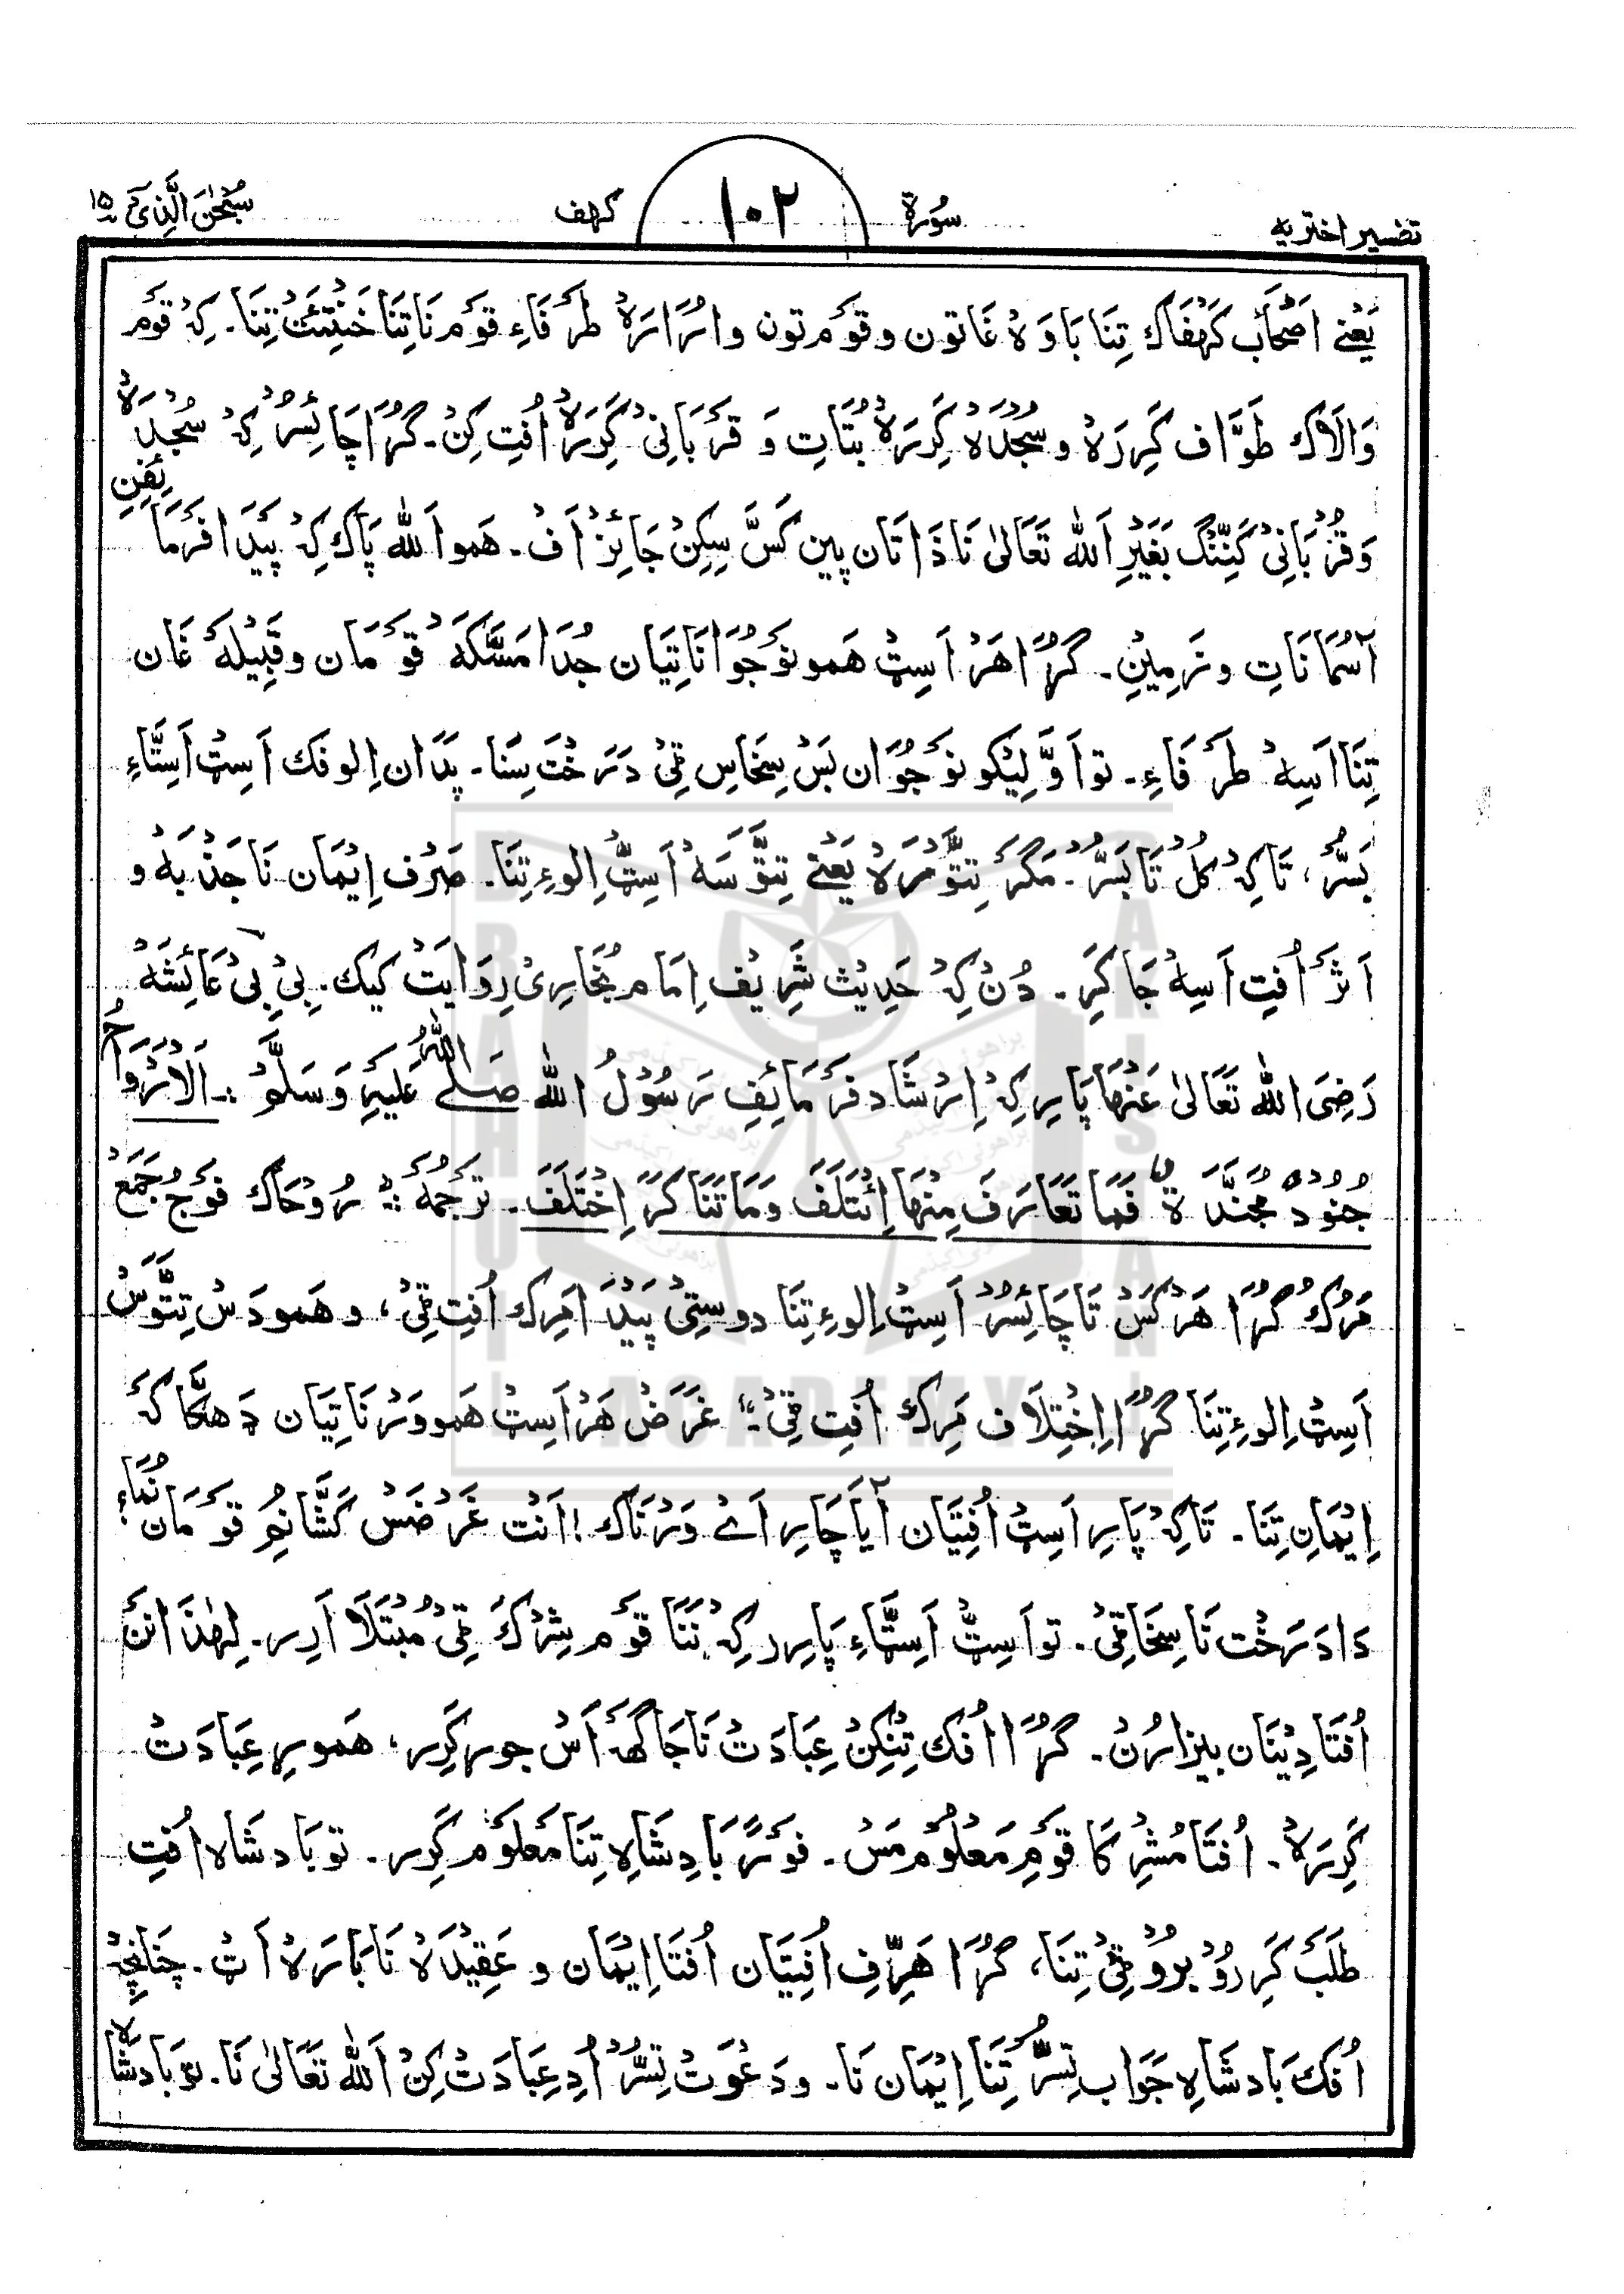 تفسیر اختریه سُورة ۱۰۲ کهف سُبْحٰنَ الَّذِیْ ۱۵
یَعْنے اَصْحَابِ کَهْفَاک تِنَا بَاوَه غَاتون و قَوْم تون و اڑارَہ طَرَفَاءِ قَوْم نَا تِنَا خَنِنگَتْ تِنَا۔ کِہ قَوْم
وَالَاک طَوَّاف کَرِرَہ و سُجْدَہ کَرِرَہ بُتَاتِ وَ قُرْبَانِیْ کَرِرَہ اُفْتِ کِنْ۔ گُڑا چَائِسُّرْ کِہ سُجْدَہ
وَ قُرْبَانِیْ کَنِّنْگ بَغَیْرِ اَللّٰه تَعَالٰی نَا ذَاتَان پِین کَسَّ سِکِنْ جَائِز اَفْ۔ هَمو اَللّٰه پَاک کِہ پَیْدَا فَرْمَائِفِنِ
آسْمَانَاتِ و زَمِینِ۔ گُڑا هَرْ اَسِٹْ هَمو نَوْجُوَانَاتِیَان جُدَا مَسَّکَہ قَوْمَان و قَبِیلَہ غَان
تِنَا اَسِہ طَرَفَاءِ۔ تو اَوَّلِیْکو نَوْجُوَان بَسْ سِخَاسِ ٹِیْ دَرَخْت سِنَا۔ پَدَان اِلوفَک اَسِٹ اَسِٹَّاءِ
بَسُّرْ، تَاکِہ کُلْ تَا بَسُّرْ۔ مَگَر تِتَّوْرَہ یَعْنے تِتَّوْسَہ اَسِٹْ اِلوءِ تِنَا۔ صَرْف اِیْمَان نَا جَذْبَه و
اَثَرْ اُفْتِ اَسِہ جَا کَرِ۔ دُنْ کِہ حَدِیْث شَرِیْف اِمَام بُخَارِیْ رِوَایَتْ کیک۔ بِیْ بِیْ عَائِشَه
رَضِیَ اللّٰه تَعَالٰی عَنْهَا پَارِر کِہ اِرْشَاد فَرْمَائِفِ رَسُوْلُ اللّٰه صَلَّے اللّٰهُ عَلَیْهِ وَسَلَّمْ :۔ اَلْاَرْوَاحُ
جُنُوْدٌ مُّجَنَّدَةٌ فَمَا تَعَارَفَ مِنْهَا اِئْتَلَفَ وَمَا تَنَاکَرَ اِخْتَلَفَ۔ تَرْجُمَه :۔ رُوْحَاک فَوْج جَمَعْ
مَرُک گُڑا هَرْکَسْ تَا چَائِسُرْ اَسِٹ اِلوءِ تِنَا دوستِیْ پَیْدَا مَرِک اُفْتِ ٹِیْ، و هَمودَسْ تِتَّوَسْ
اَسِٹ اِلوءِ تِنَا گُڑا اِخْتِلَاف مَرِک اُفْتِ ٹِیْ۔" غَرَضْ هَرْ اَسِٹ هَمو وَرْنَاتِیَان ڈَهکَّا کَہ
اِیْمَانِ تِنَا۔ تَاکِہ پَارِر اَسِٹ اُفْتِیَان آیَا چَارِر اَے وَرْنَاک! اَنْت غَرْضَسْ کَشَّا نُمِ قَوْمَان نُمَاءِ؛
دَا دَرَخْت نَا سِخَاٹِیْ۔ تو اَسِٹّ اَسِٹَّاءِ پَارِر کِہ نَنَا قَوْم شِرْک ٹِیْ مُبْتَلَا اَرِر۔ لِهٰذَا نَن
اُفْتَا دِیْنَان بیزَارُنْ۔ گُڑا اُفْک تِنْکِنْ عِبَادَتْ نَا جَاگَهْ اَسْ جور کَرِر، هَمورِ عِبَادَتْ
کَرِرَہ۔ اُفْتَا مُشْرِکَا قَوْمِ مَعْلُوْم مَسْ۔ فَوْرًا بَادِشَاہِ تِنَا مَعْلُوْم کَرِر۔ تو بَادشَاہ اُفْتِ
طَلَبْ کَرِ رُوْ بَرُوْ ٹِیْ تِنَا، گُڑا هَرِّفِ اُفْتِیَان اُفْتَا اِیْمَان و عَقِیْدَہ نَا بَارَہ اَٹْ۔ چَنَانچِہ
اُفْک بَادشَاہِ جَوَاب تِسُّرْ تِنَا اِیْمَان نَا۔ و دَعْوَتْ تِسُّرْ اُدِ عِبَادَتْ کِنْ اَللّٰه تَعَالٰی نَا۔ تو بَادشَاہ